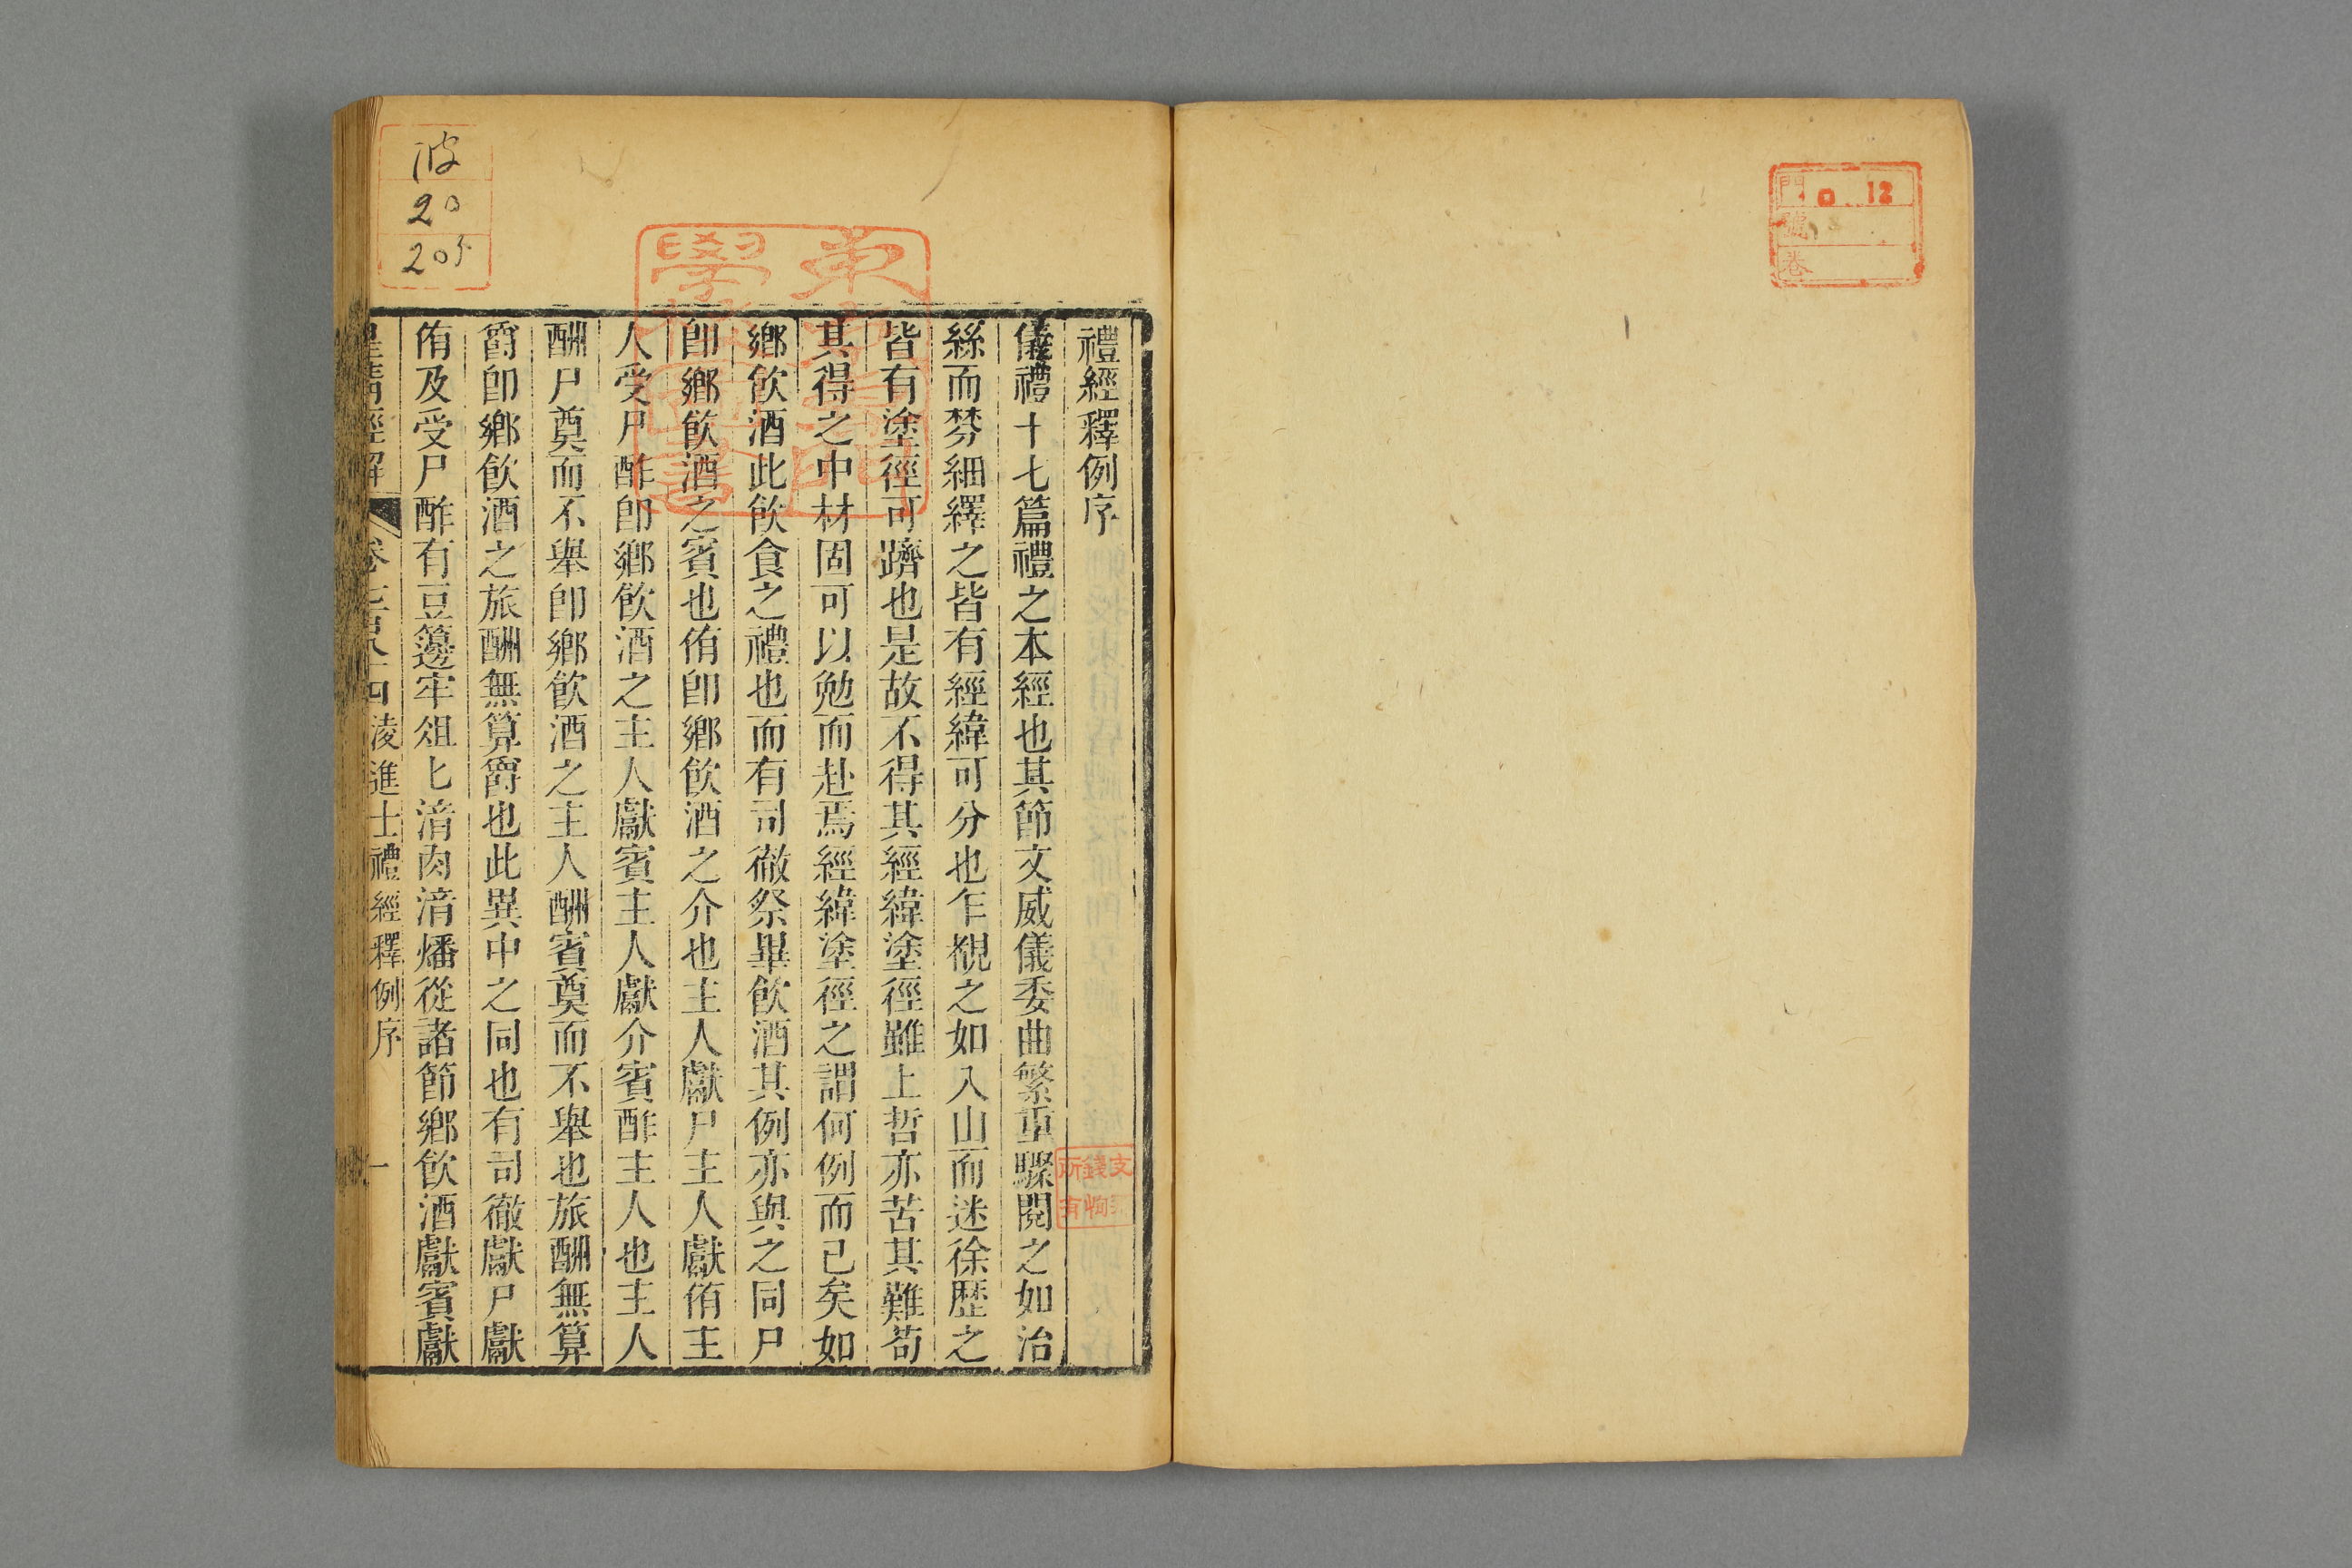 門 0 12
號
卷
禮經釋例序
儀禮十七篇禮之本經也其節文威儀委曲繁重驟閱之如治
絲而棼細繹之皆有經緯可分也乍覩之如入山而迷徐歷之
皆有塗徑可躋也是故不得其經緯塗徑雖上哲亦苦其難苟
其得之中材固可以勉而赴焉經緯塗徑之謂何例而已矣如
鄉飲酒此飲食之禮也而有司徹祭畢飲酒其例亦與之同尸
卽鄉飲酒之賓也侑卽鄉飲酒之介也主人獻尸主人獻侑主
人受尸酢卽鄉飲酒之主人獻賓主人獻介賓酢主人也主人
酬尸奠而不舉卽鄉飲酒之主人酬賓奠而不舉也旅酬無算
爵卽鄉飲酒之旅酬無算爵也此異中之同也有司徹獻尸獻
侑及受尸酢有豆籩牢俎匕湆肉湆燔從諸節鄉飲酒獻賓獻
皇清經解 卷七百八十四 淩進士禮經釋例序 一
波
20
205